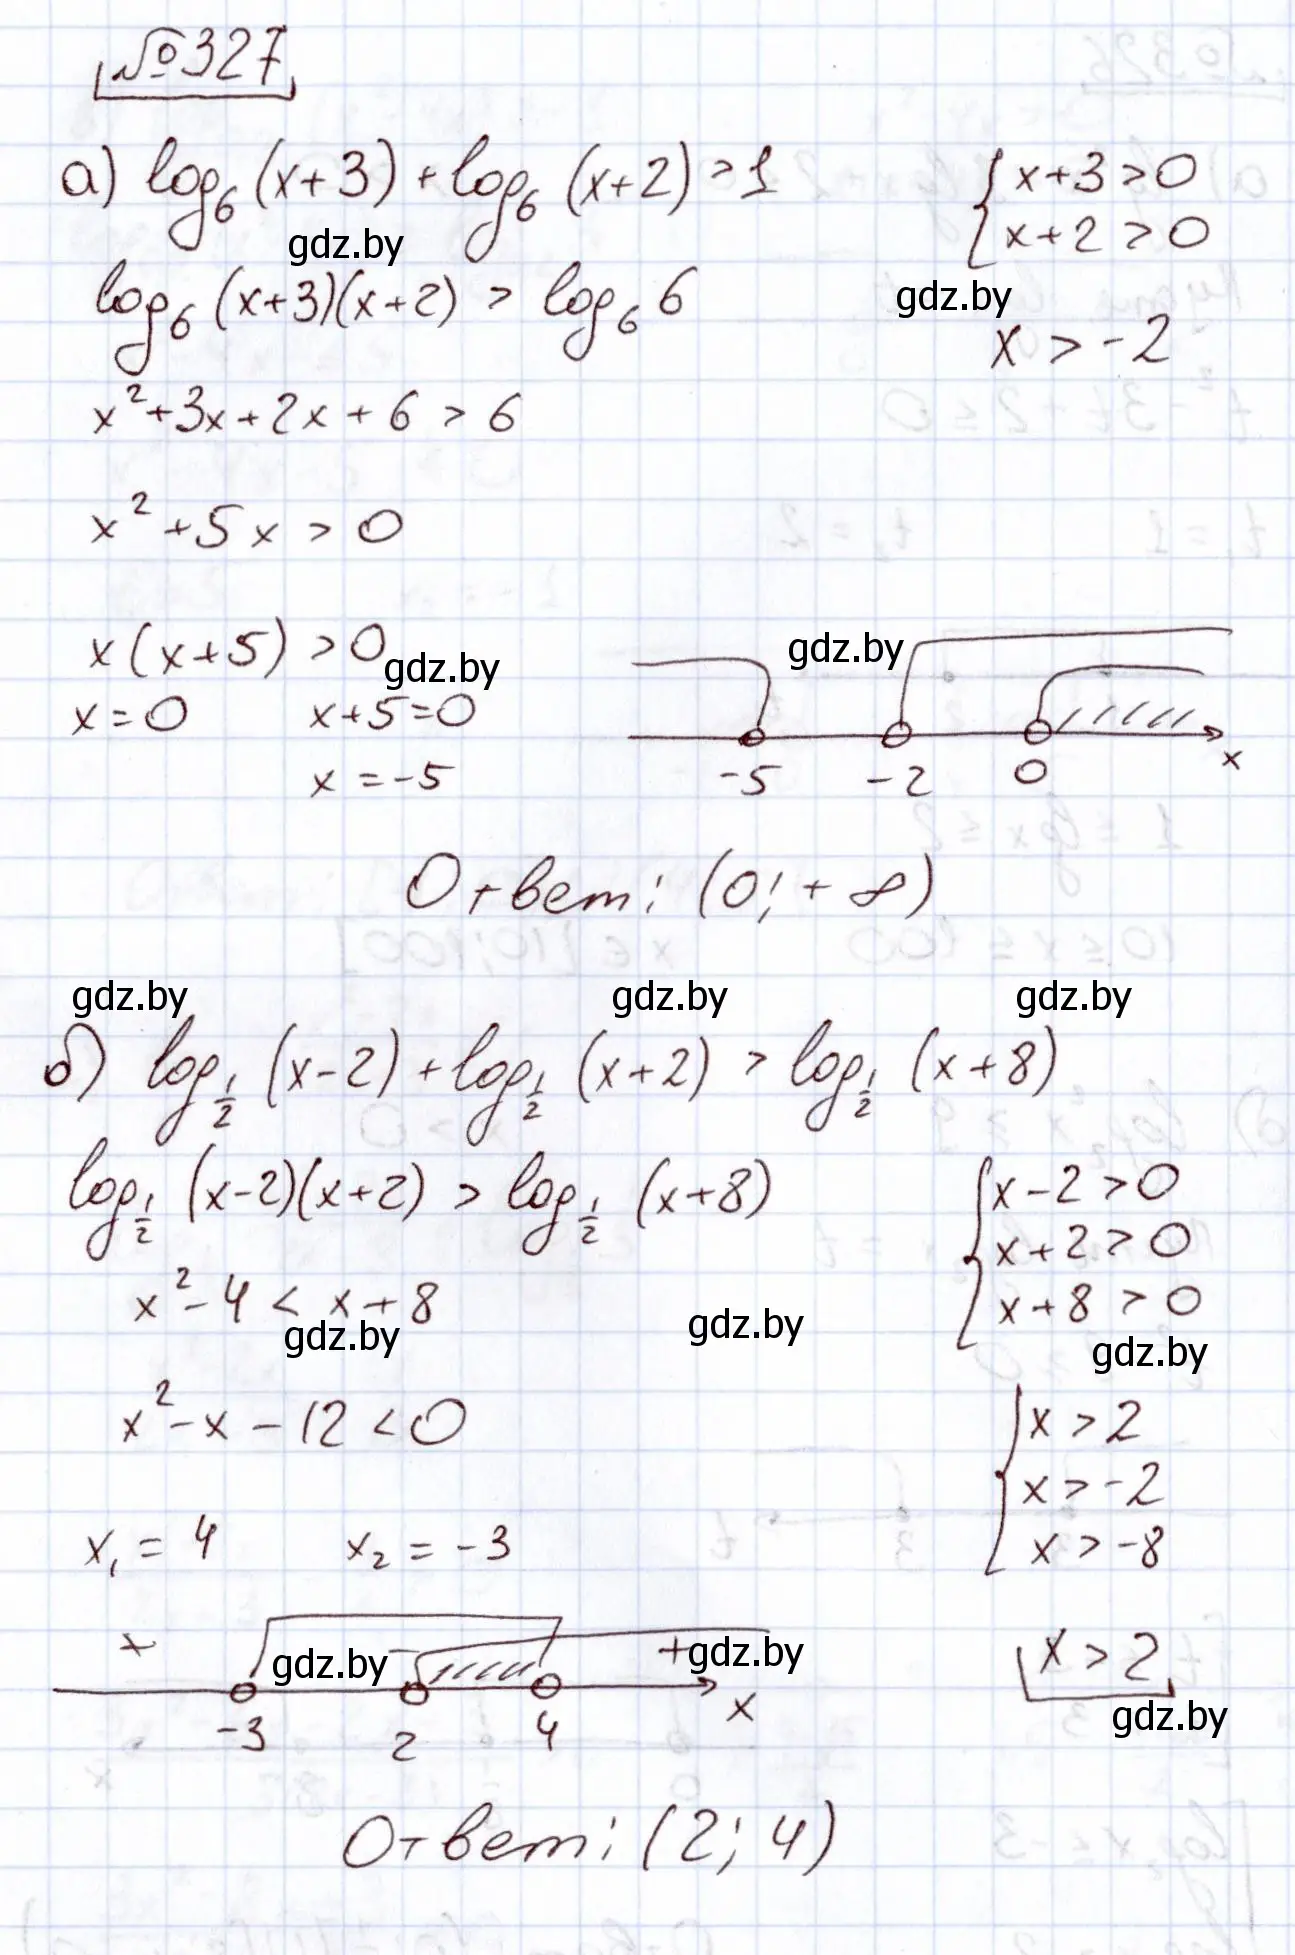 №327
а) log₆ (x+3) + log₆ (x+2) > 1
{ x+3 > 0
x+2 > 0
gdz.by
log₆ (x+3)(x+2) > log₆ 6
gdz.by
x > -2
x²+3x+2x+6 > 6
x²+5x > 0
x(x+5) > 0
gdz.by
gdz.by
x=0 x+5=0
x = -5
-5 -2 0 x
Ответ: (0; +∞)
gdz.by gdz.by gdz.by
б) log½ (x-2) + log½ (x+2) > log½ (x+8)
log½ (x-2)(x+2) > log½ (x+8)
{ x-2 > 0
x+2 > 0
x+8 > 0
x²-4 < x+8
gdz.by gdz.by gdz.by
x²-x-12 < 0
{ x > 2
x > -2
x > -8
x₁ = 4 x₂ = -3
+ gdz.by + gdz.by
x > 2
-3 2 4 x
gdz.by
Ответ: (2; 4)